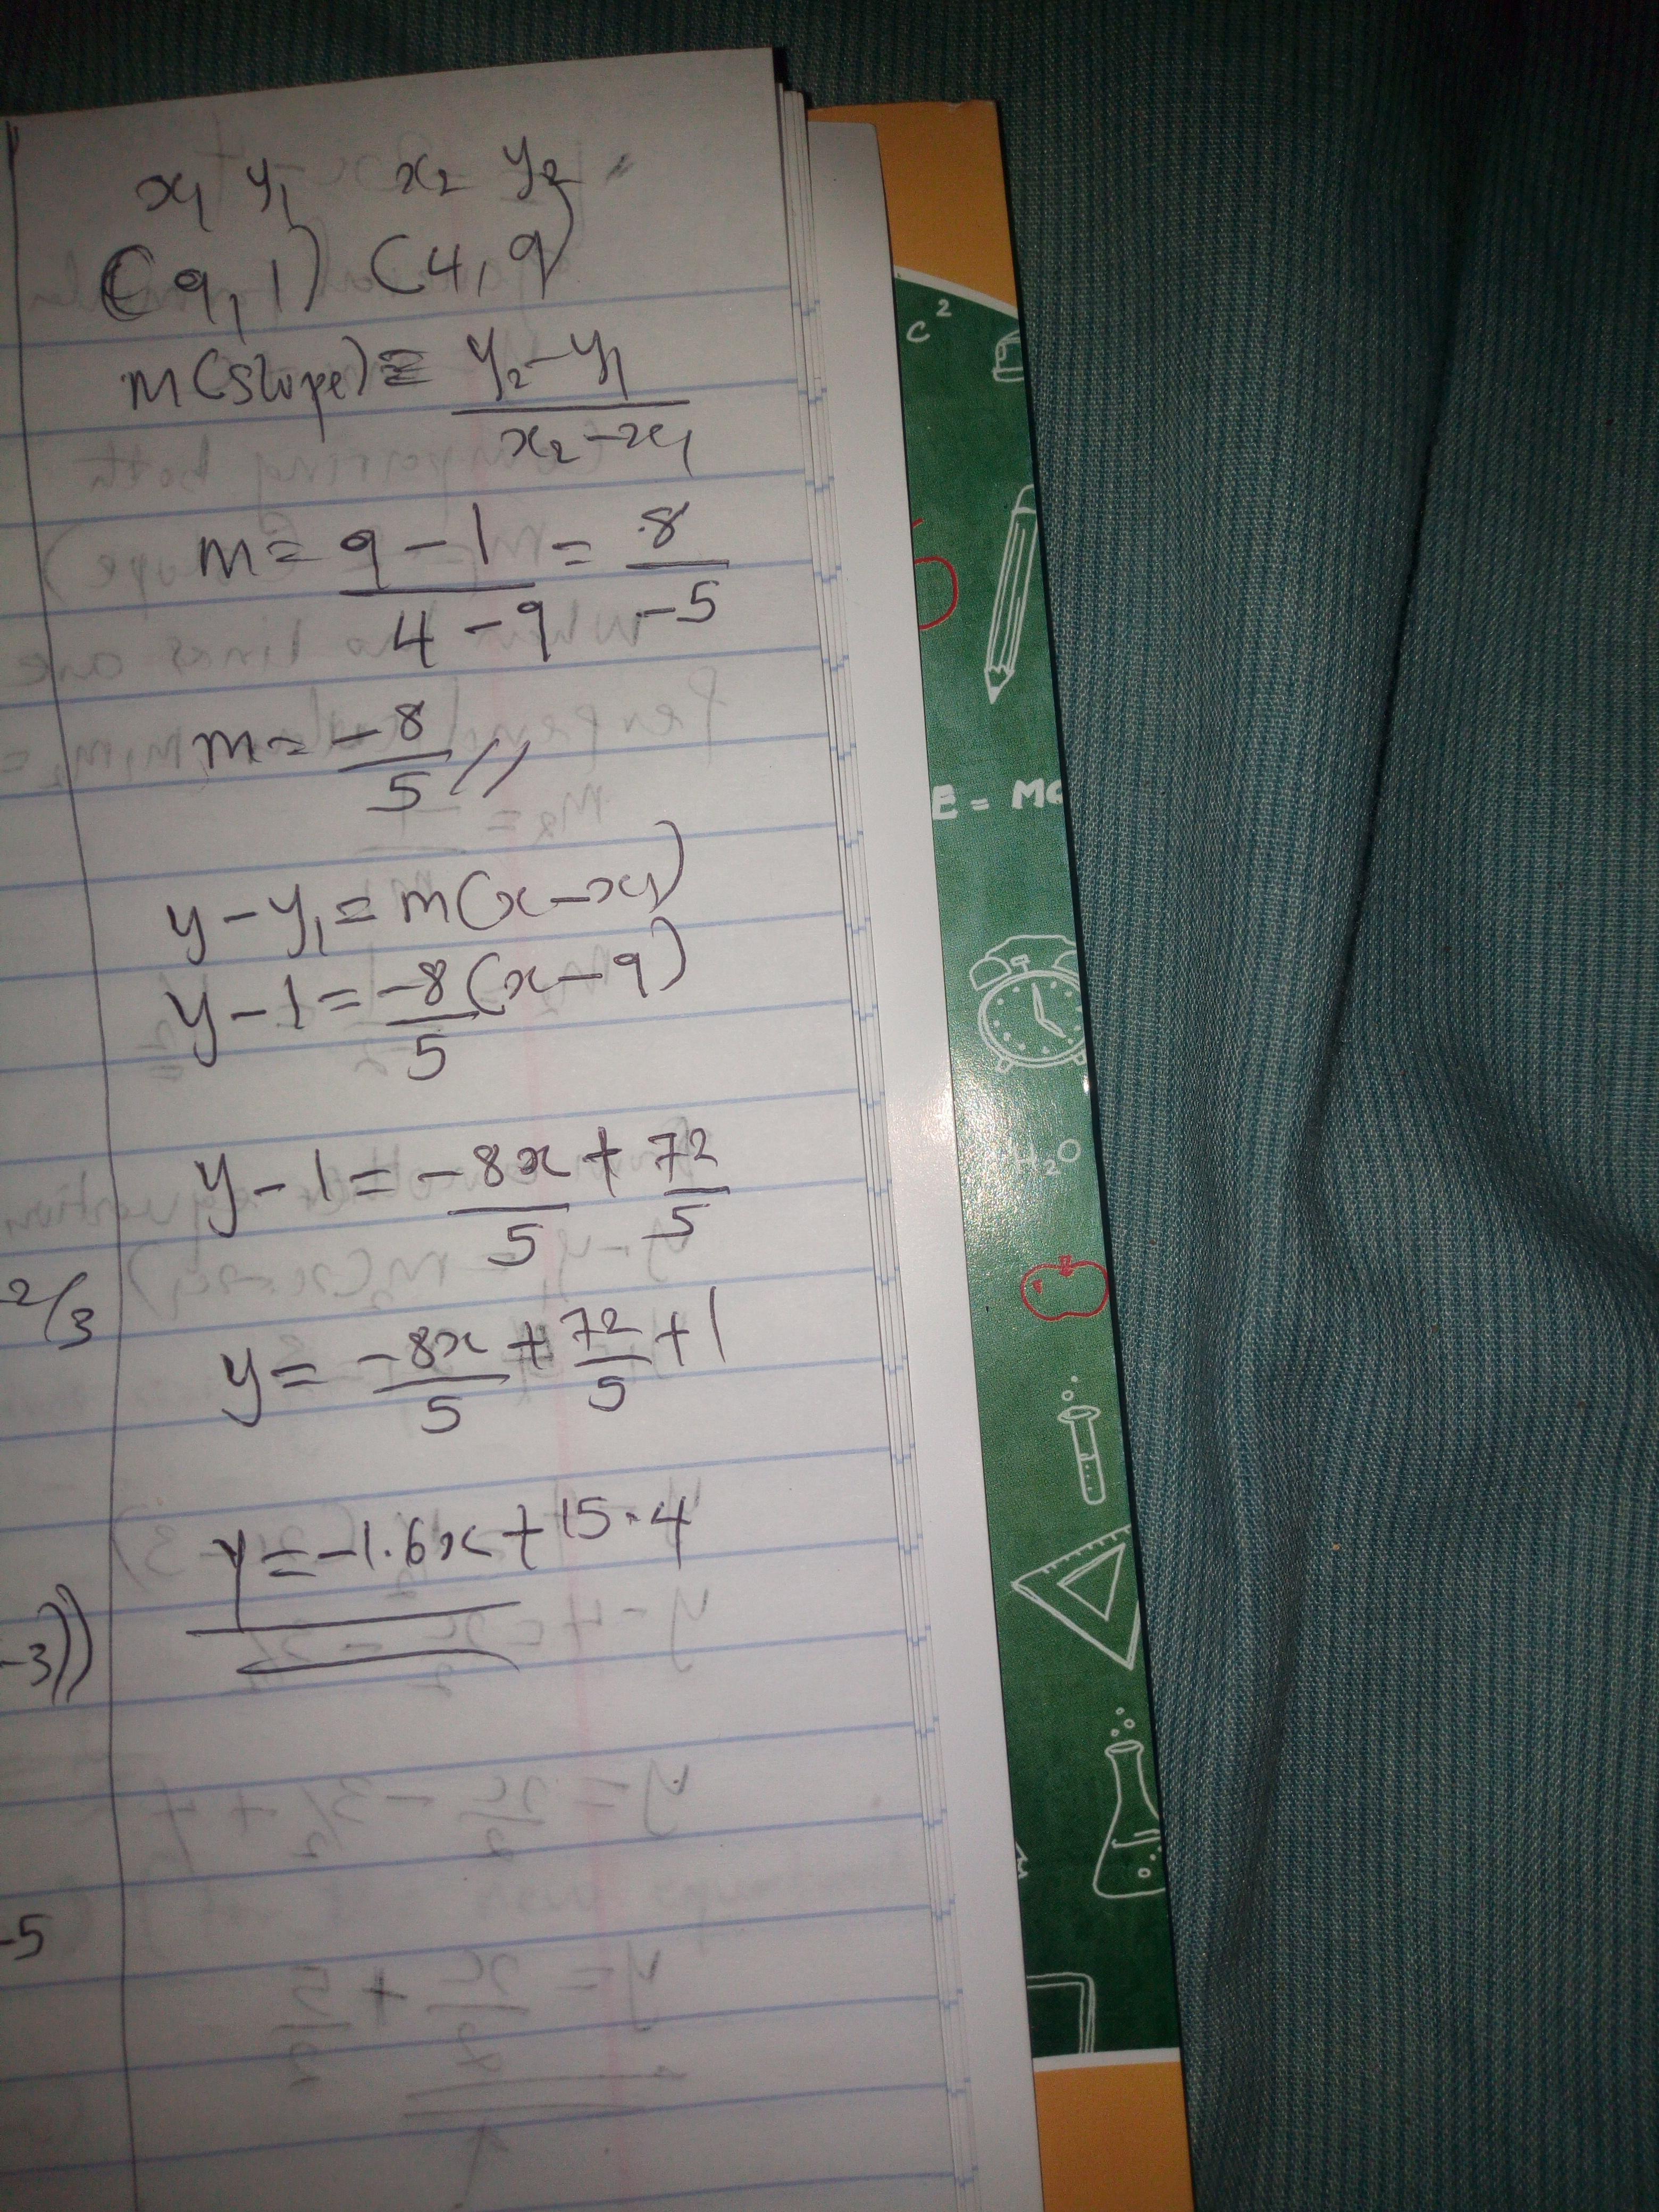 x1 y1 x2 y2
(9,1) (4,9)
m(slope) = y2-y1
x2-x1
m= 9-1 = 8
4-9 -5
m= -8
5 //
y-y1=m(x-x1)
y-1=-8(x-9)
5
y-1=-8x+72
5 5
y= -8x+72+1
5 5
y=-1.6x+15.4
2/3
-3))
-5
C2
E = MC
H2O